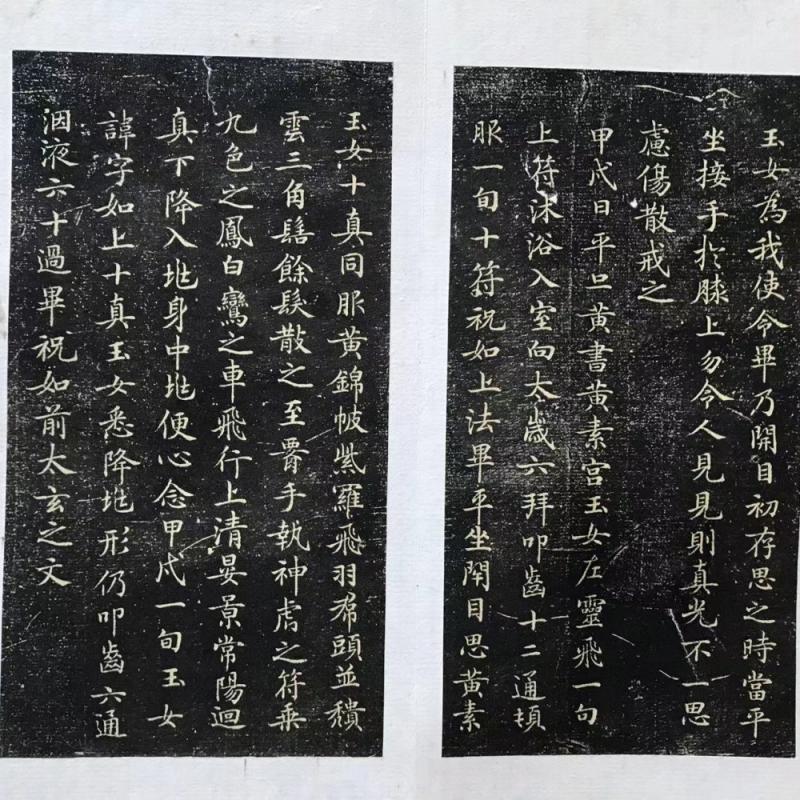 玉女為我使令畢乃開目初存思之時當平
坐接手於膝上勿令人見見則真光不一思
慮傷散戒之
甲戌日平旦黃書黃素宮玉女左靈飛一旬
上符沐浴入室向太歲六拜叩齒十二通頓
服一旬十符祝如上法畢平坐閇目思黃素
玉女十真同服黃錦帔紫羅飛羽帬頭並穨
雲三角髻餘髮散之至䏶手執神虎之符乗
九色之鳳白鸞之車飛行上清晏景常陽迴
真下降入地身中地便心念甲戌一旬玉女
諱字如上十真玉女悉降地形仍叩齒六通
咽液六十過畢祝如前太玄之文